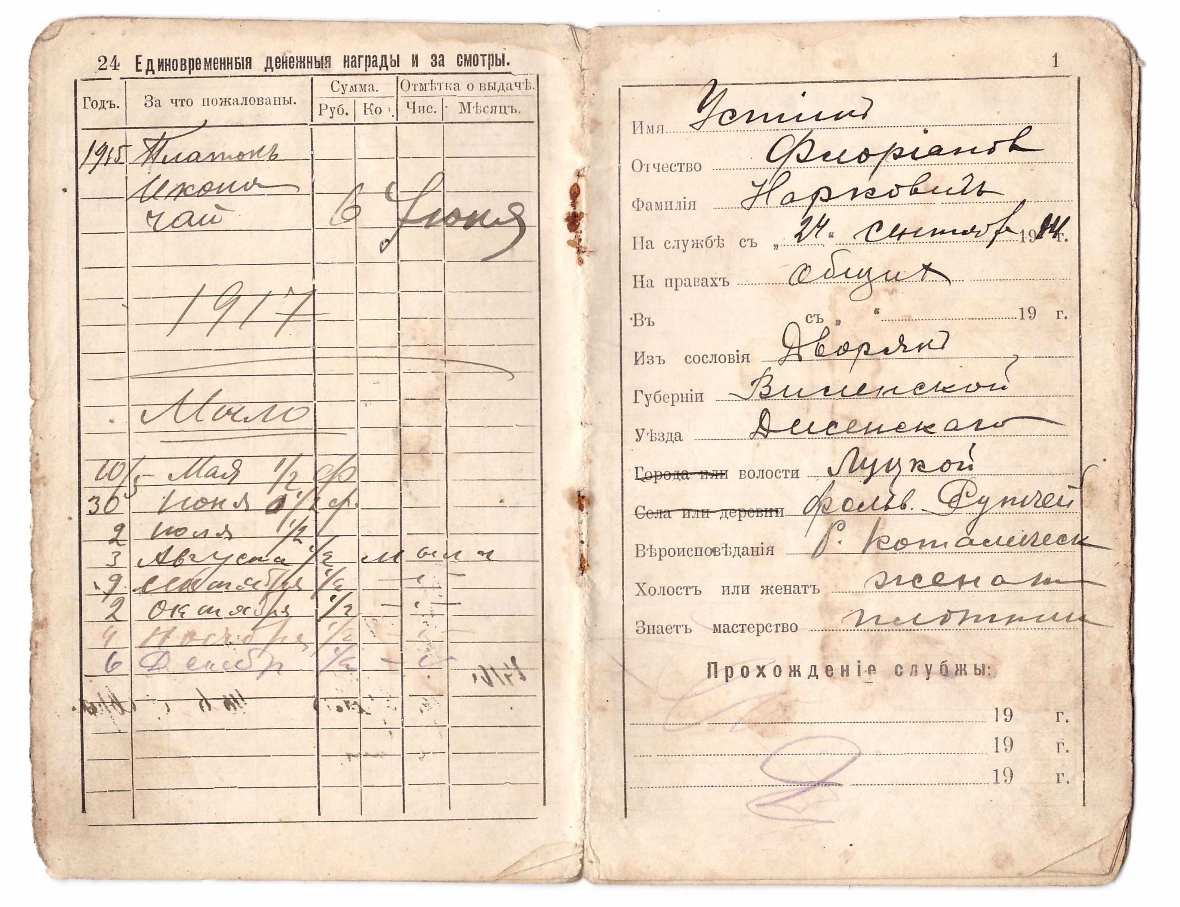 24 Единовременныя денежныя награды и за смотры.
Годъ. За что пожалованы. Сумма. Отмѣтка о выдачѣ.
Руб. Ко Чис. Мѣсяцъ.
1915 Платокъ
Икона
чай 6 Июня
1917
Мыло
10/5 Мая 1/2 ф
30 Июня 1/2 ф.
2 Июля 1/2
3 Августа 1/2 мыла
9 Сентября 1/2 - " -
2 Октября 1/2 - " -
4 Ноября 1/2 "
6 Декабр 1/2 - " -
1
Имя Устинъ
Отчество Флоріановъ
Фамилія Нарковичъ
На службѣ съ „ 24 " сентября 1914 г.
На правахъ общих
Въ съ „ " 19 г.
Изъ сословія Дворянъ
Губерніи Виленской
Уѣзда Дисенскаго
Города или волости Луцкой
Села или деревни фольв.
Вѣроисповѣданія Р. Католическ
Холостъ или женатъ женат
Знаетъ мастерство плотник
Прохожденіе слубжы:
19 г.
19 г.
19 г.